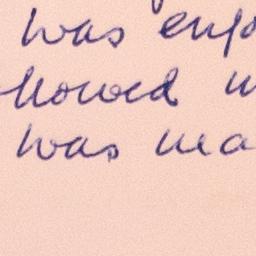 was enjo
llowed w
was ma